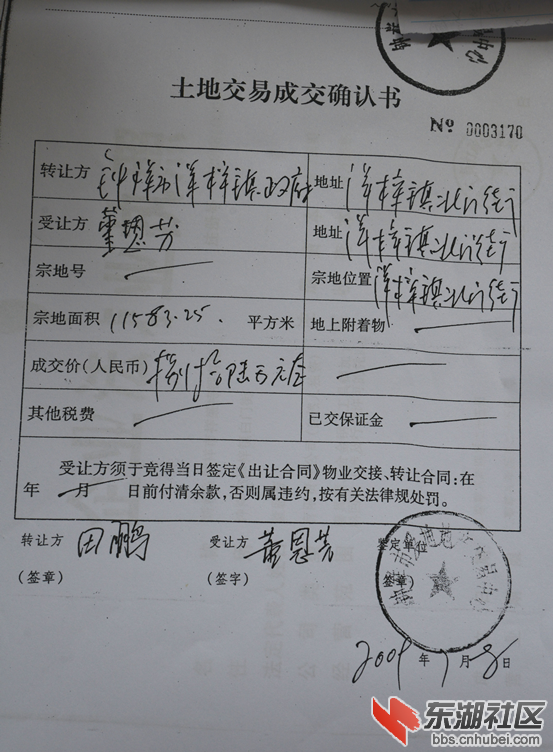 土地交易成交确认书
№ 0003170
转让方 钟祥市洋梓镇政府 地址 洋梓镇北门街
受让方 董恩芳 地址 洋梓镇北门街
宗地号 宗地位置 洋梓镇北门街
宗地面积 11583.25. 平方米 地上附着物
成交价(人民币) 万元
其他税费 已交保证金
受让方须于竞得当日签定《出让合同》物业交接、转让合同:在
年 月 日前付清余款,否则属违约,按有关法律规处罚。
转让方 田鹏 受让方 董恩芳 鉴定单位
(签章) (签字) (签章)
年 月 日
东湖社区
bbs.cnhubei.com